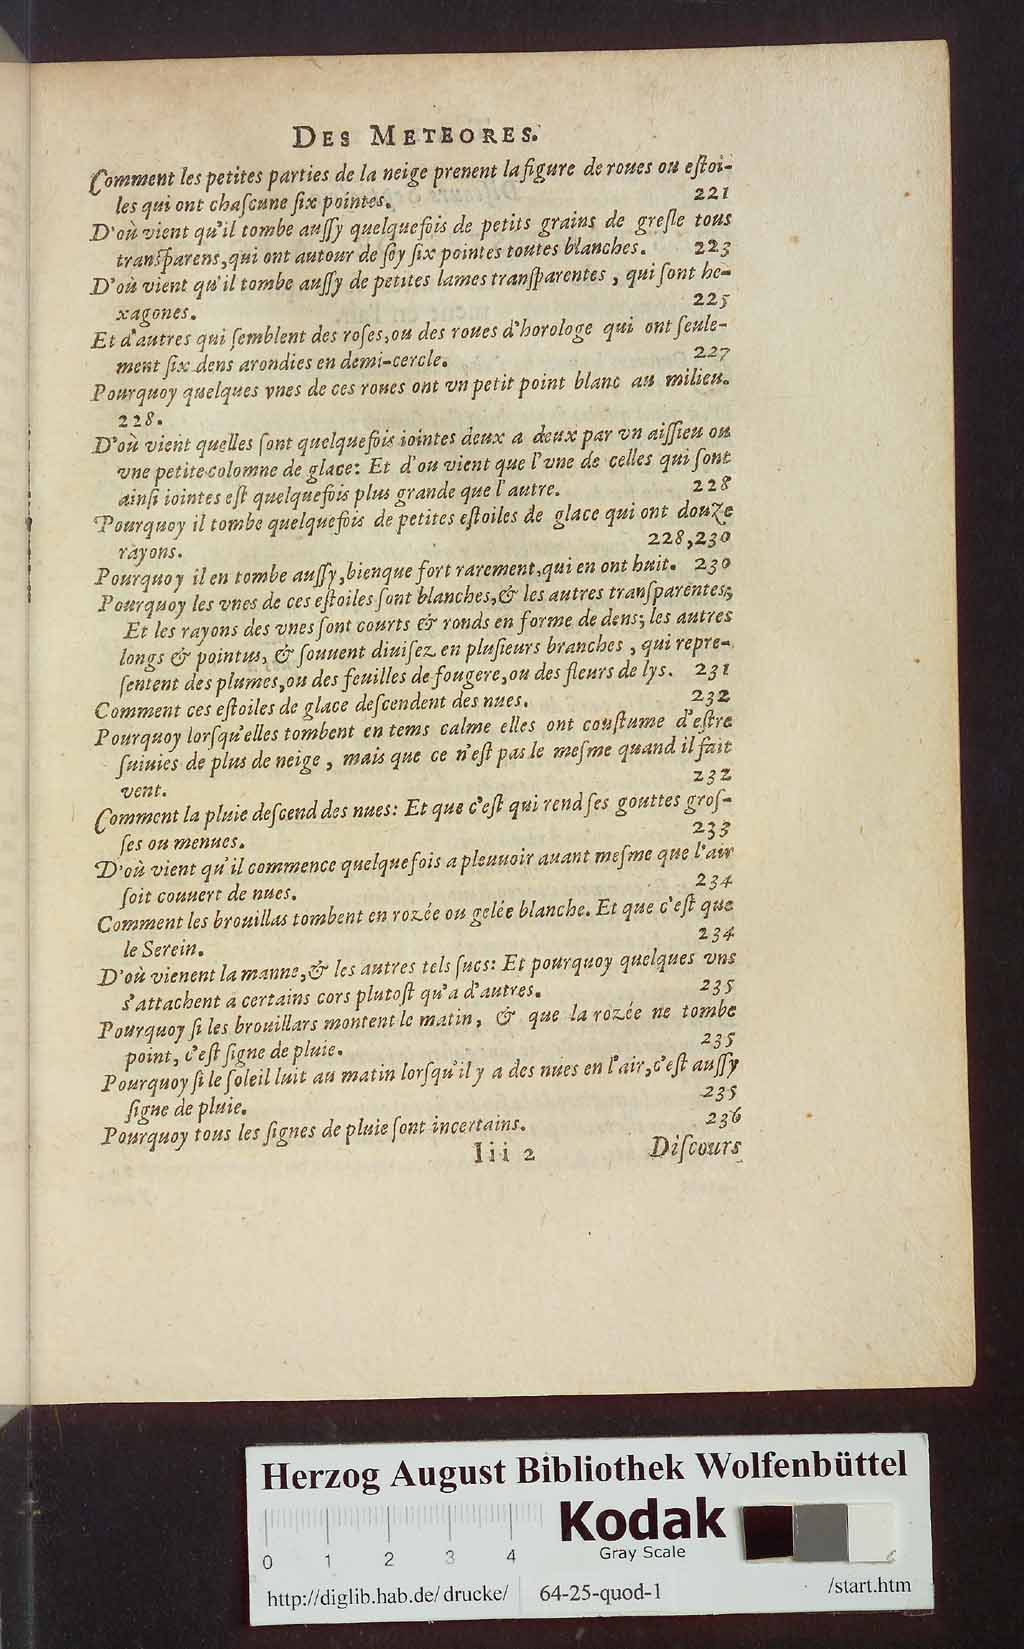 DES METEORES.
Comment les petites parties de la neige prenent la figure de roues ou eſtoi-
les qui ont chaſcune ſix pointes. 221
D'où vient qu'il tombe auſſy quelquefois de petits grains de greſle tous
tranſparens, qui ont autour de ſoy ſix pointes toutes blanches. 223
D'où vient qu'il tombe auſſy de petites lames tranſparentes, qui ſont he-
xagones. 225
Et d'autres qui ſemblent des roſes, ou des roues d'horologe qui ont ſeule-
ment ſix dens arondies en demi-cercle. 227
Pourquoy quelques vnes de ces roues ont vn petit point blanc au milieu.
228.
D'où vient quelles ſont quelquefois iointes deux a deux par vn aiſſieu ou
vne petite colomne de glace: Et d'ou vient que l'vne de celles qui ſont
ainſi iointes eſt quelquefois plus grande que l'autre. 228
Pourquoy il tombe quelquefois de petites eſtoiles de glace qui ont douze
rayons. 228,230
Pourquoy il en tombe auſſy, bienque fort rarement, qui en ont huit. 230
Pourquoy les vnes de ces eſtoiles ſont blanches, & les autres tranſparentes;
Et les rayons des vnes ſont courts & ronds en forme de dens; les autres
longs & pointus, & ſouuent diuiſez en pluſieurs branches, qui repre-
ſentent des plumes, ou des feuilles de fougere, ou des fleurs de lys. 231
Comment ces eſtoiles de glace deſcendent des nues. 232
Pourquoy lorſqu'elles tombent en tems calme elles ont couſtume d'eſtre
ſuiuies de plus de neige, mais que ce n'eſt pas le meſme quand il fait
vent. 232
Comment la pluie deſcend des nues: Et que c'eſt qui rend ſes gouttes groſ-
ſes ou menues. 233
D'où vient qu'il commence quelquefois a pleuuoir auant meſme que l'air
ſoit couuert de nues. 234
Comment les brouillas tombent en rozée ou gelée blanche. Et que c'eſt que
le Serein. 234
D'où vienent la manne, & les autres tels ſucs: Et pourquoy quelques vns
s'attachent a certains cors plutoſt qu'a d'autres. 235
Pourquoy ſi les brouillars montent le matin, & que la rozée ne tombe
point, c'eſt ſigne de pluie. 235
Pourquoy ſi le ſoleil luit au matin lorſqu'il y a des nues en l'air, c'eſt auſſy
ſigne de pluie. 235
Pourquoy tous les ſignes de pluie ſont incertains. 236
Iii 2 Diſcours
Herzog August Bibliothek Wolfenbüttel
Kodak
Gray Scale
0 1 2 3 4
http://diglib.hab.de/drucke/ 64-25-quod-1 /start.htm